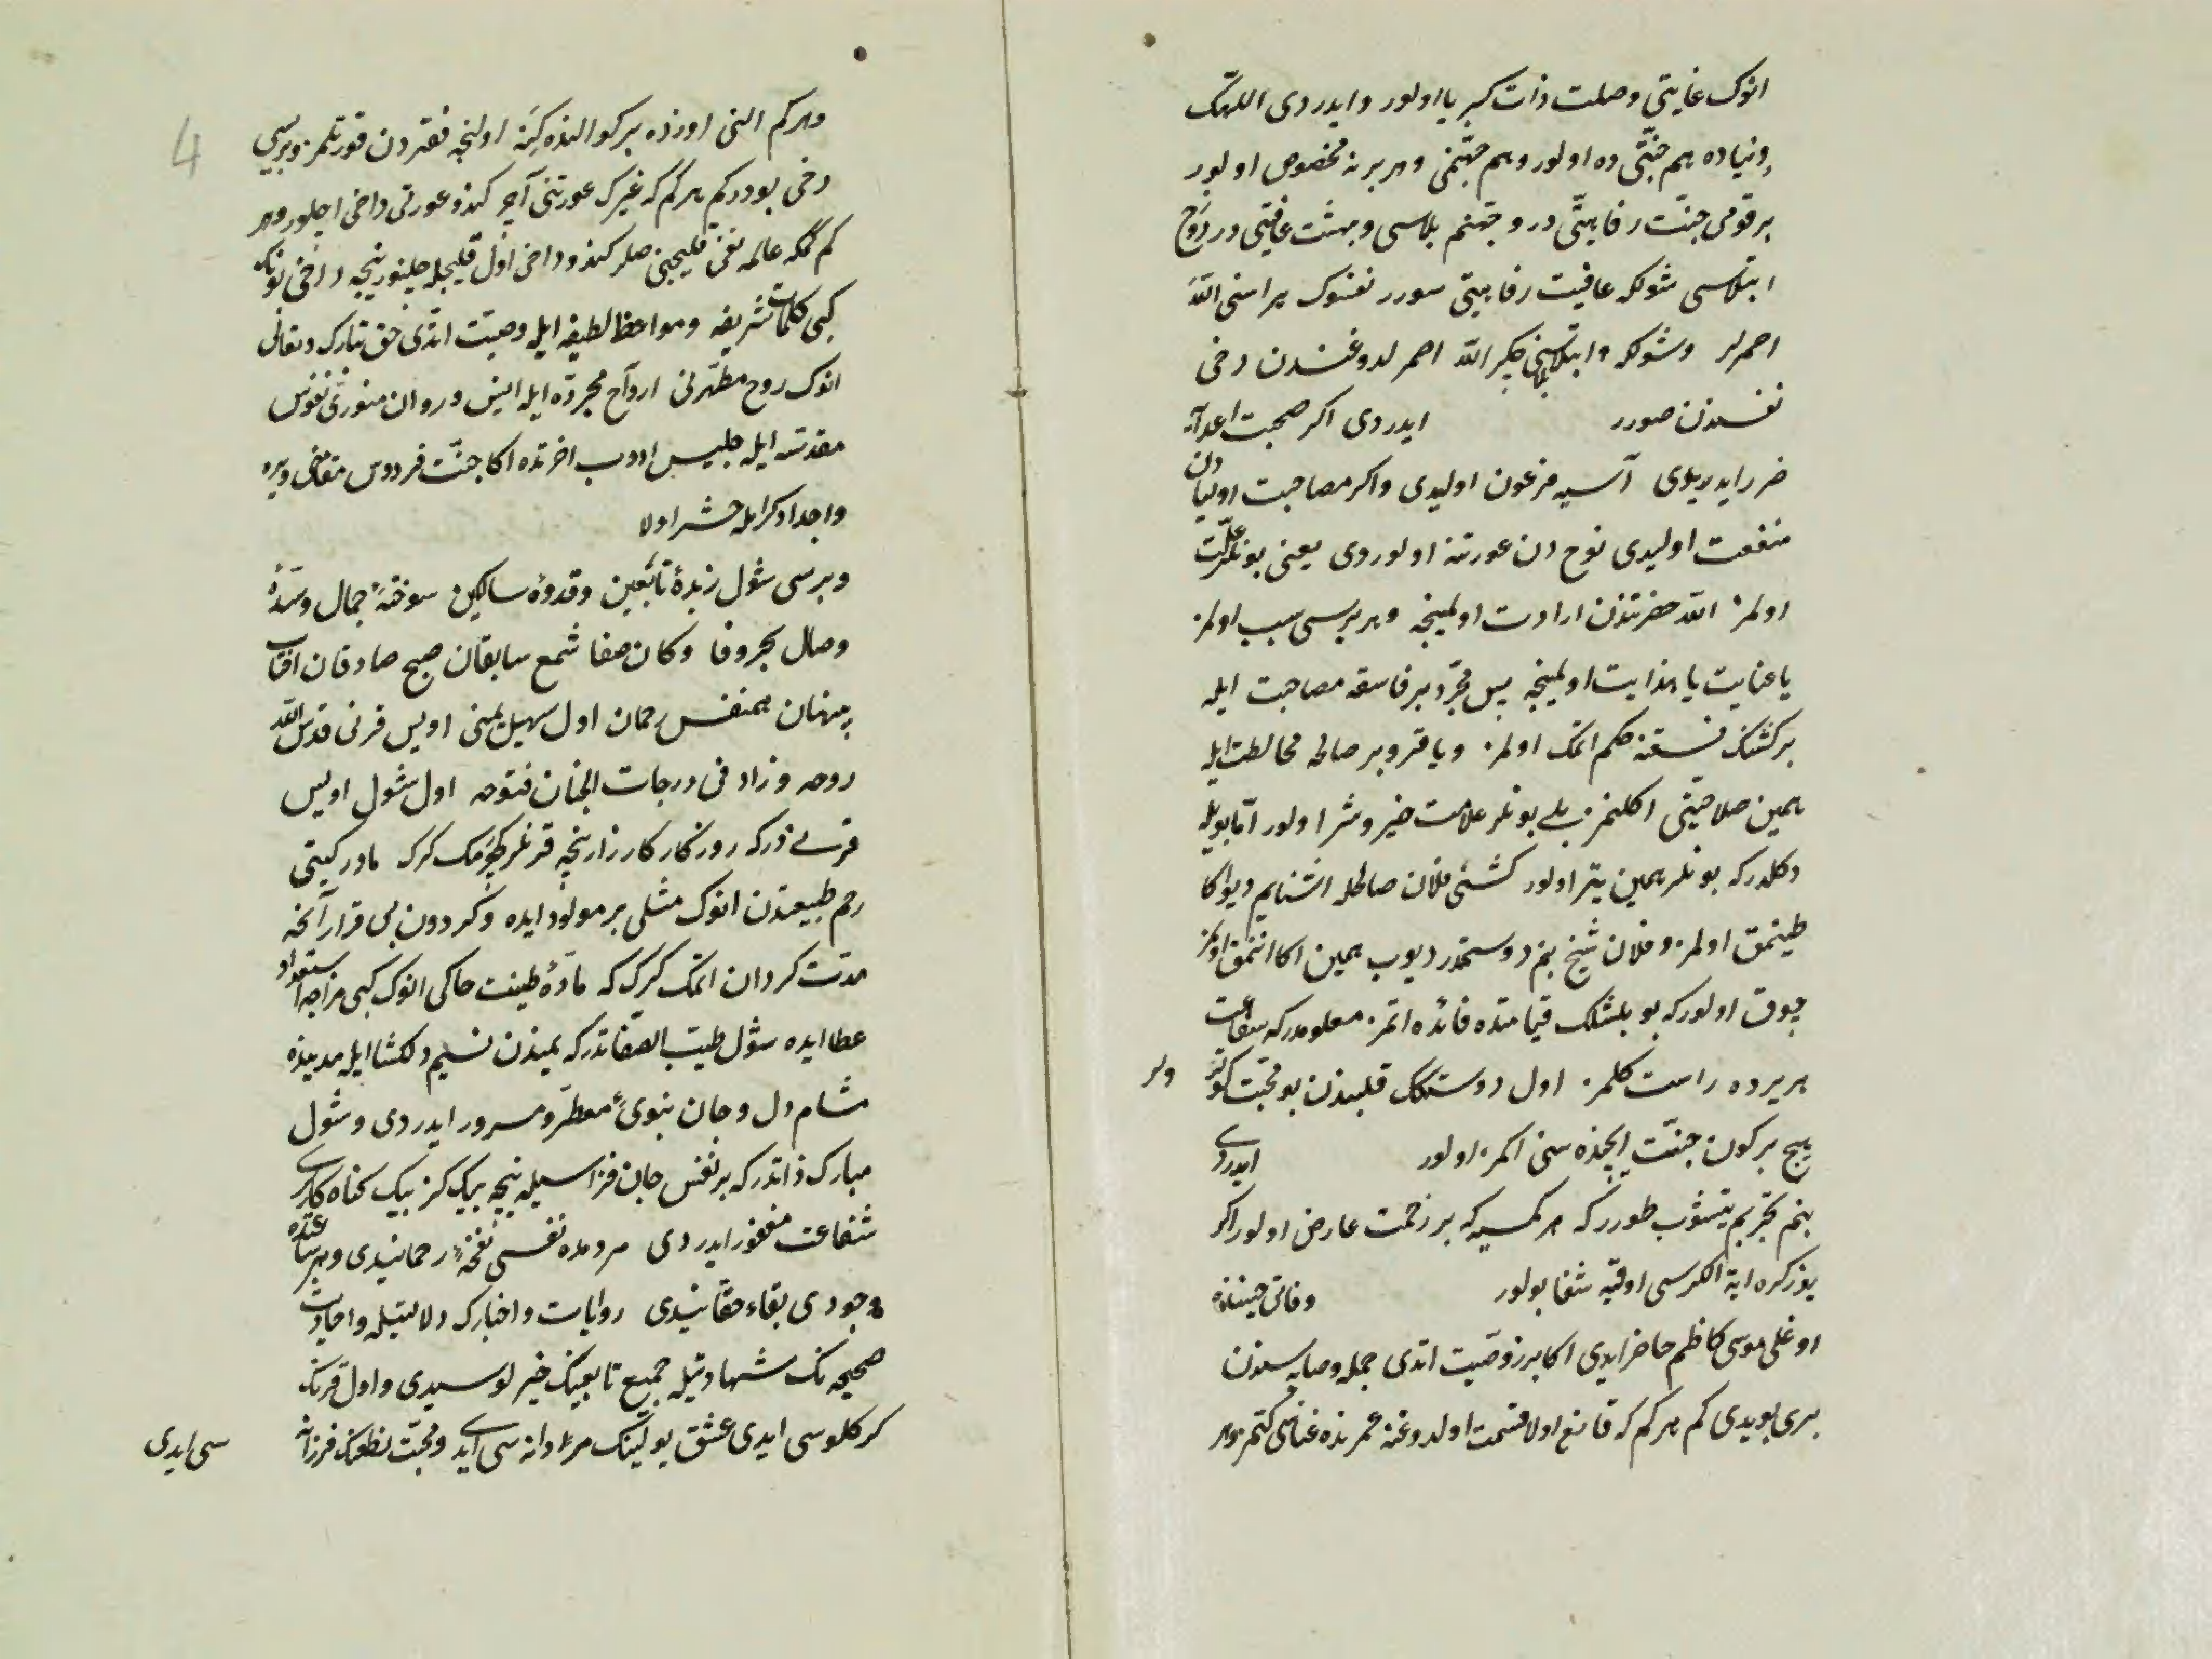 انوك غایتی وصلت ذات کبریا اولور و ایدردی اللهك
دنیاده هم جنّتی ده اولور و هم جهنّمی و هر بر نه مخصوص اولور
بر قومی جنّت رفاهیّتی در و جهنّم بلاسی و بهشت عافیتی در دوزخ
ابتلاسی شولکه عافیت رفاهیتی سورر نفسنوك مراسنی الله
اصمرلر و شولکه ابتلاسنی چکر الله اصمرلدوغندن دخی
نفسندن صورر ایدردی اکر صحبت اعدآ
ضرر ایدریدی آسیه فرعون اولیدی و اکر مصاحبت اولیادن
منفعت اولیدی نوح دن عورتنه اولوردی یعنی بونلر علّت
اولمز الله حضرتندن ارادت اولمینجه و هر بریسی سبب اولمز
یا عنایت یا هدایت اولمینجه پس مجرّد بر فاسقه مصاحبت ایله
بر کشنك فسقنه حکم اتمك اولمز و یا قرو بر صالحه مخالطت ایله
همین صلاحیّتی اکلنمز بلی بونلر علامت خیر و شر اولور امّا بویله
دکلدر که بونلر همین یتر اولور کشی فلان صالحله اشنایم دیو اکا
طینمق اولمز و فلان شیخ بنم دوستمدر دیوب همین اکا انانمق اولمز
چوق اولور که بو بلشلك قیامتده فائده اتمز معلومدر که شفاعت
هر یرده راست کلمز اول دوستلك قلبندن بو محبّت کوتر
ولر
هیچ بر کون جنّت ایچنده سنی اکمز اولور ایدردی
بنم تجربم یتشوب طورر که هر کمسیه که بر زحمت عارض اولور اکر
یوز کره ایة الکرسی اوقیه شفا بولور وفاتی حیننده
اوغلی موسی کاظم حاضر ایدی اکا برز وصیّت اتدی جمله وصایاسندن
بری بویدی کم هر کم که قانع اولا قسمت اولدوغنه عمرنده غناسی کتمز و هر
4
و هر کم النی اوزده بر کو النده کینه اولنجه فقردن قورتلمز و بریسی
دخی بودر کم هر کم که غیرك عورتنی آچر کندو عورتی داخی اچلور و هر
کم کمکه عالمه بغی قلیجنی صلر کندو داخی اول قلیجله چلنور نیجه داخی بونك
کبی کلمات شریفه و مواعظ لطیفه ایله وصیّت اتدی حق تبارك و تعالی
انوك روح مطهّرنی ارواح مجرّده ایله انیس و روان منوّرنی نفوس
مقدّسه ایله جلیس ادوب اخرتده اکا جنّت فردوس مقامی ویره
و اجداد کرامله حشر اولا
و بریسی شول زبدهٔ تابعین و قدوهٔ سالکین سوختهٔ جمال و تشنهٔ
وصال بحر وفا و کان صفا شمع سابقان صبح صادقان افتاب
پنهان همنفس رحمان اول سهیل یمنی اویس قرنی قدّس الله
روحه و زاد فی درجات الجنان فتوحه اول شول اویس
قرنی در که روزکار کارزار نیجه قرنلر کچومك کرك مادر کیتی
رحم طبیعتدن انوك مثلی بر مولود ایده و کردون بی قرار آنجه
مدّت کردان اتمك کرك که مادّهٔ طینت خاکی انوك کبی مزاجه استعداد
عطا ایده شول طیّب الصفاتدر که یمندن نسیم دلکشا ایله مدینده
مشام دل و جان نبوی معطّر و مسرور ایدردی و شول
مبارك ذاتدر که بر نفس جان فزا سیله نیجه بیك کز بیك کناه کاری
شفاعت مغفور ایدردی مرده نفسی نفخهٔ رحمانیدی و هر ساعتده
وجودی بقاء حقّانیدی روایات و اخبارك دلالتیله و احادیث
صحیحه نك شهادتیله جمیع تابعینك خیرلوسیدی و اول قرنك
کرکلوسی ایدی عشق یولینك مردانه سی ایدی و محبّت نطعنك فرزانه
سی ایدی